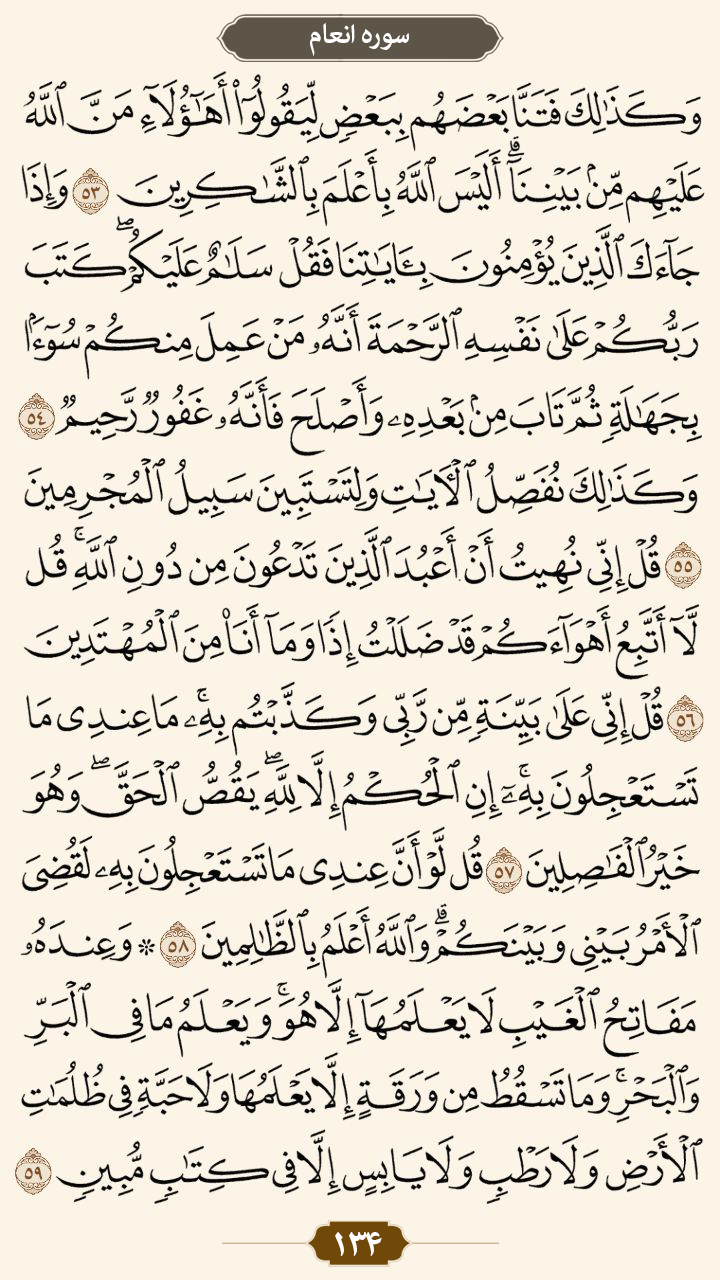 سوره انعام
وَكَذَٰلِكَ فَتَنَّا بَعْضَهُم بِبَعْضٍ لِّيَقُولُوٓا۟ أَهَٰٓؤُلَآءِ مَنَّ ٱللَّهُ
عَلَيْهِم مِّنۢ بَيْنِنَآ ۗ أَلَيْسَ ٱللَّهُ بِأَعْلَمَ بِٱلشَّٰكِرِينَ ٥٣ وَإِذَا
جَآءَكَ ٱلَّذِينَ يُؤْمِنُونَ بِـَٔايَٰتِنَا فَقُلْ سَلَٰمٌ عَلَيْكُمْ ۖ كَتَبَ
رَبُّكُمْ عَلَىٰ نَفْسِهِ ٱلرَّحْمَةَ أَنَّهُۥ مَنْ عَمِلَ مِنكُمْ سُوٓءًۢا
بِجَهَٰلَةٍ ثُمَّ تَابَ مِنۢ بَعْدِهِۦ وَأَصْلَحَ فَأَنَّهُۥ غَفُورٌ رَّحِيمٌ ٥٤
وَكَذَٰلِكَ نُفَصِّلُ ٱلْـَٔايَٰتِ وَلِتَسْتَبِينَ سَبِيلُ ٱلْمُجْرِمِينَ
٥٥ قُلْ إِنِّى نُهِيتُ أَنْ أَعْبُدَ ٱلَّذِينَ تَدْعُونَ مِن دُونِ ٱللَّهِ ۚ قُل
لَّآ أَتَّبِعُ أَهْوَآءَكُمْ قَدْ ضَلَلْتُ إِذًا وَمَآ أَنَا۠ مِنَ ٱلْمُهْتَدِينَ
٥٦ قُلْ إِنِّى عَلَىٰ بَيِّنَةٍ مِّن رَّبِّى وَكَذَّبْتُم بِهِۦ ۚ مَا عِندِى مَا
تَسْتَعْجِلُونَ بِهِۦٓ ۚ إِنِ ٱلْحُكْمُ إِلَّا لِلَّهِ ۖ يَقُصُّ ٱلْحَقَّ ۖ وَهُوَ
خَيْرُ ٱلْفَٰصِلِينَ ٥٧ قُل لَّوْ أَنَّ عِندِى مَا تَسْتَعْجِلُونَ بِهِۦ لَقُضِىَ
ٱلْأَمْرُ بَيْنِى وَبَيْنَكُمْ ۗ وَٱللَّهُ أَعْلَمُ بِٱلظَّٰلِمِينَ ٥٨ * وَعِندَهُۥ
مَفَاتِحُ ٱلْغَيْبِ لَا يَعْلَمُهَآ إِلَّا هُوَ ۚ وَيَعْلَمُ مَا فِى ٱلْبَرِّ
وَٱلْبَحْرِ ۚ وَمَا تَسْقُطُ مِن وَرَقَةٍ إِلَّا يَعْلَمُهَا وَلَا حَبَّةٍ فِى ظُلُمَٰتِ
ٱلْأَرْضِ وَلَا رَطْبٍ وَلَا يَابِسٍ إِلَّا فِى كِتَٰبٍ مُّبِينٍ ٥٩
۱۳۴